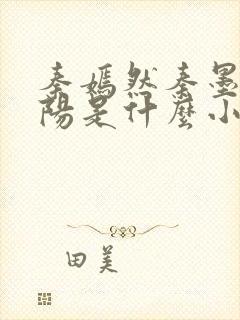 秦嫣然秦墨
阳是什麼小
田美